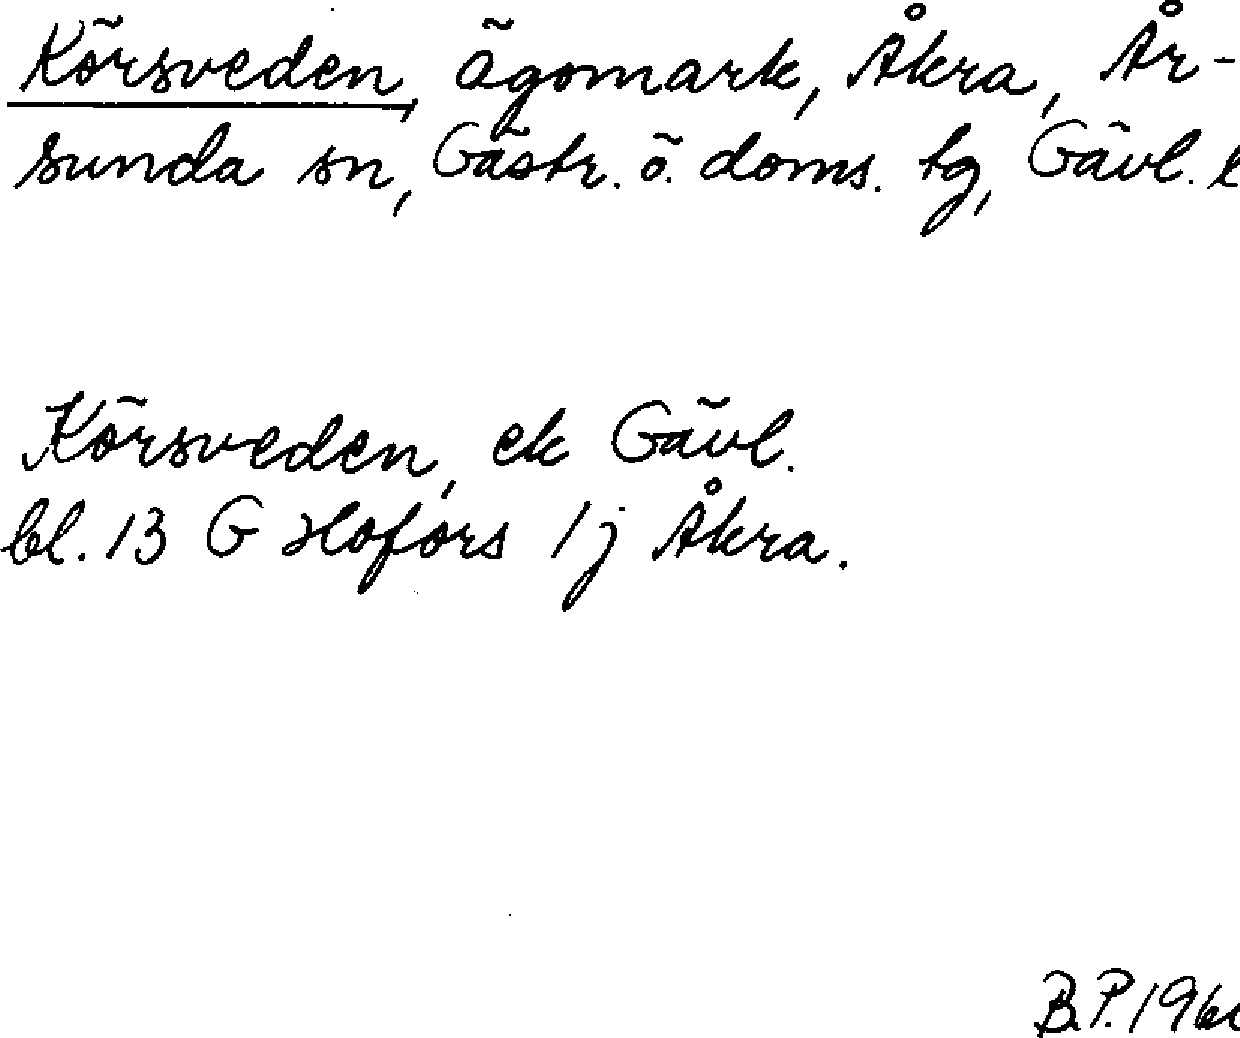 Körsveden, ägomark, Åkra, År-
sunda sn, Gästr. ö. doms. tg, Gävl. l
Körsveden, ek Gävl.
bl. 13 G Hofors 1j Åkra.
B.P. 196